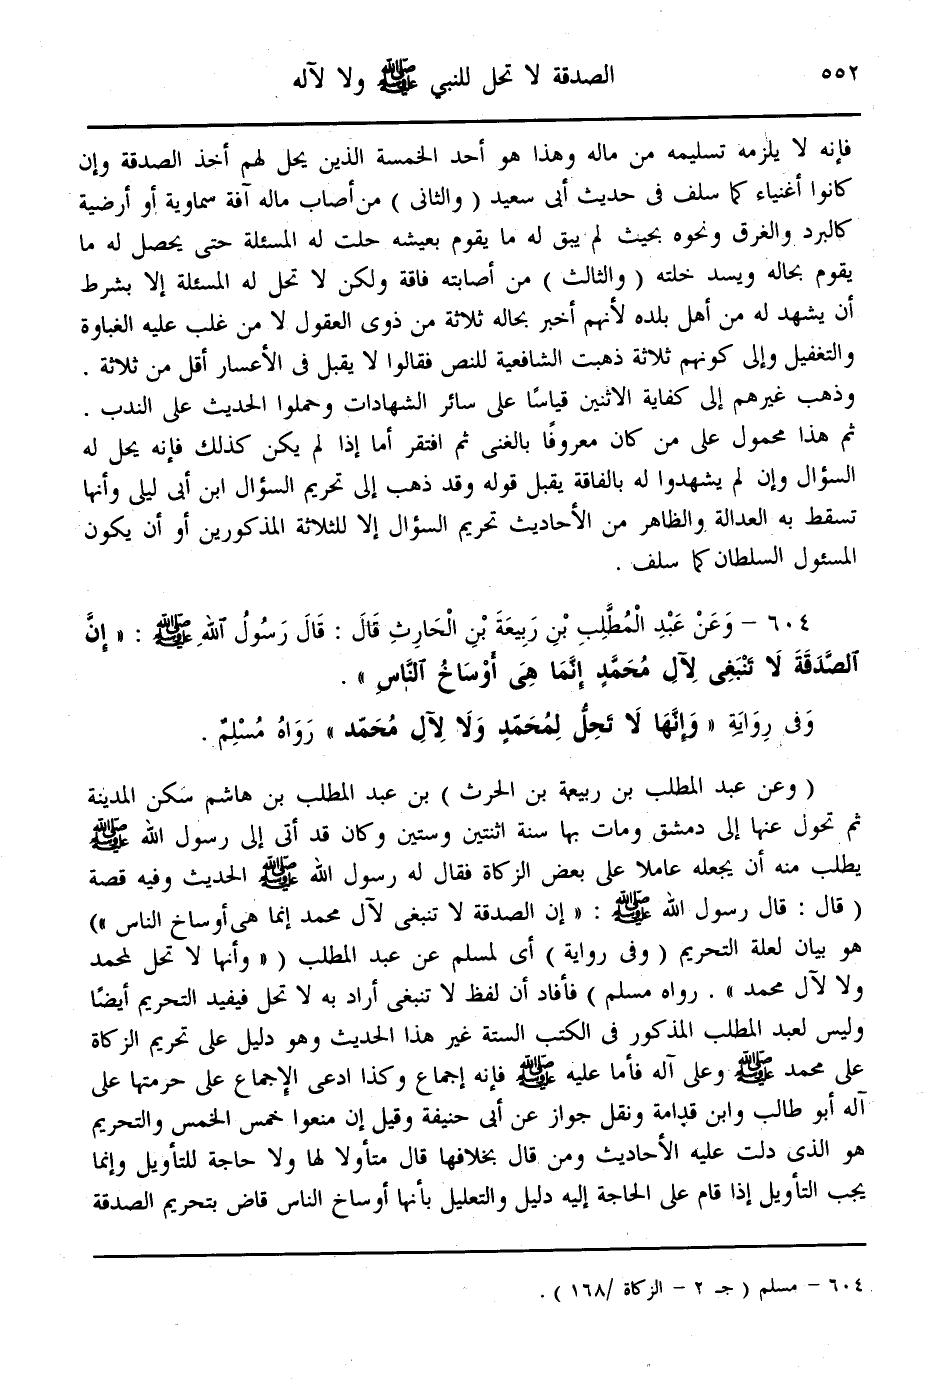 ٥٥٢
الصدقة لا تحل للنبي ﷺ ولا لآله
فإنه لا يلزمه تسليمه من ماله وهذا هو أحد الخمسة الذين يحل لهم أخذ الصدقة وإن
كانوا أغنياء كما سلف فى حديث أبى سعيد ( والثانى ) من أصاب ماله آفة سماوية أو أرضية
كالبرد والغرق ونحوه بحيث لم يبق له ما يقوم بعيشه حلت له المسئلة حتى يحصل له ما
يقوم بحاله ويسد خلته ( والثالث ) من أصابته فاقة ولكن لا تحل له المسئلة إلا بشرط
أن يشهد له من أهل بلده لأنهم أخبر بحاله ثلاثة من ذوى العقول لا من غلب عليه الغباوة
والتغفيل وإلى كونهم ثلاثة ذهبت الشافعية للنص فقالوا لا يقبل فى الأعسار أقل من ثلاثة .
وذهب غيرهم إلى كفاية الاثنين قياسًا على سائر الشهادات وحملوا الحديث على الندب .
ثم هذا محمول على من كان معروفًا بالغنى ثم افتقر أما إذا لم يكن كذلك فإنه يحل له
السؤال وإن لم يشهدوا له بالفاقة يقبل قوله وقد ذهب إلى تحريم السؤال ابن أبى ليلى وأنها
تسقط به العدالة والظاهر من الأحاديث تحريم السؤال إلا للثلاثة المذكورين أو أن يكون
المسئول السلطان كما سلف .
٦٠٤ – وَعَنْ عَبْدِ الْمُطَّلِبِ بْنِ رَبِيعَةَ بْنِ الْحَارِثِ قَالَ : قَالَ رَسُولُ اللهِ ﷺ : « إِنَّ
الصَّدَقَةَ لَا تَنْبَغِى لِآلِ مُحَمَّدٍ إِنَّمَا هِىَ أَوْسَاخُ النَّاسِ » .
وَفى رِوَايَةِ « وَإِنَّهَا لَا تَحِلُّ لِمُحَمّدٍ وَلَا لِآلِ مُحَمّد » رَوَاهُ مُسْلِمٌ .
( وعن عبد المطلب بن ربيعة بن الحرث ) بن عبد المطلب بن هاشم سكن المدينة
ثم تحول عنها إلى دمشق ومات بها سنة اثنتين وستين وكان قد أتى إلى رسول الله ﷺ
يطلب منه أن يجعله عاملا على بعض الزكاة فقال له رسول الله ﷺ الحديث وفيه قصة
( قال : قال رسول الله ﷺ : « إن الصدقة لا تنبغى لآل محمد إنما هى أوساخ الناس »)
هو بيان لعلة التحريم ( وفى رواية ) أى لمسلم عن عبد المطلب ( « وأنها لا تحل لمحمد
ولا لآل محمد » . رواه مسلم ) فأفاد أن لفظ لا تنبغى أراد به لا تحل فيفيد التحريم أيضًا
وليس لعبد المطلب المذكور فى الكتب الستة غير هذا الحديث وهو دليل على تحريم الزكاة
على محمد ﷺ وعلى آله فأما عليه ﷺ فإنه إجماع وكذا ادعى الإجماع على حرمتها على
آله أبو طالب وابن قدامة ونقل جواز عن أبى حنيفة وقيل إن منعوا خمس الخمس والتحريم
هو الذى دلت عليه الأحاديث ومن قال بخلافها قال متأولا لها ولا حاجة للتأويل وإنما
يجب التأويل إذا قام على الحاجة إليه دليل والتعليل بأنها أوساخ الناس قاض بتحريم الصدقة
٦٠٤ – مسلم ( جـ ٢ – الزكاة /١٦٨ ) .